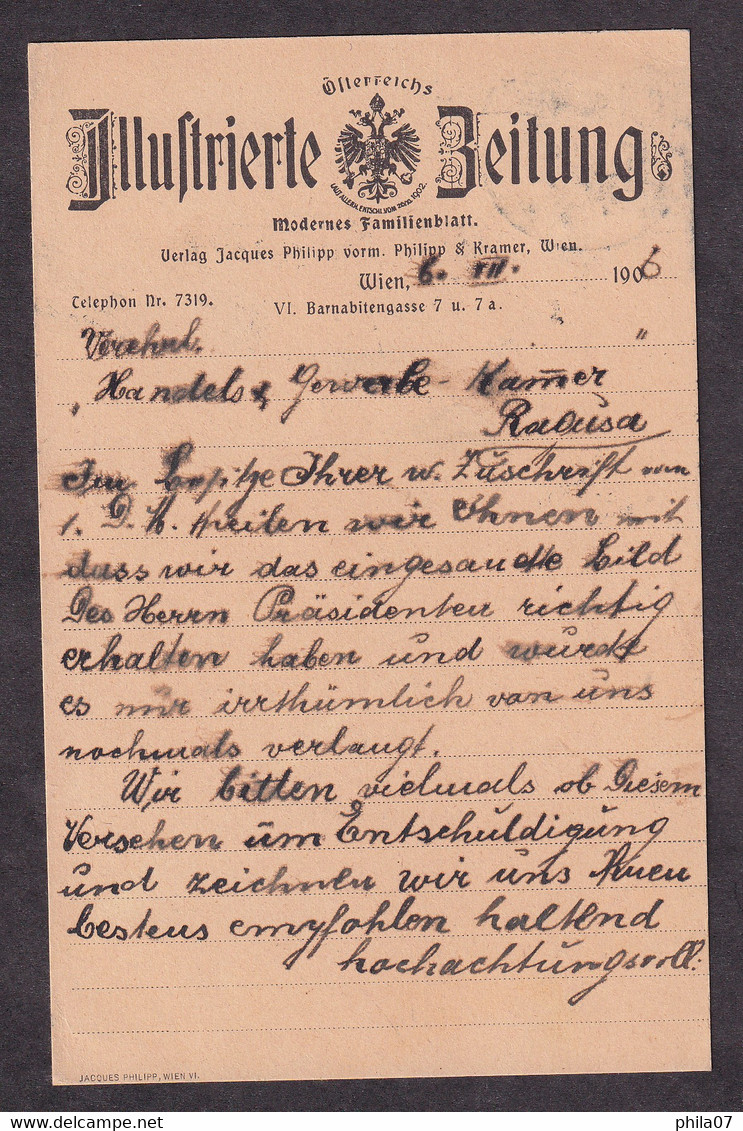 Österreichs
Illustrierte Zeitung
LAUT ALLERH. ENTSCHL. VOM 1902.
Modernes Familienblatt.
Verlag Jacques Philipp vorm. Philipp & Kramer, Wien.
Wien, 6. VII. 1906
Telephon Nr. 7319. VI. Barnabitengasse 7 u. 7a.
Verehrl. "
„Handels & Gewerbe-Kam̅er
Ragusa
Im Besitze Ihrer w. Zuschrift vom
1. D. M. theilen wir Ihnen mit
dass wir das eingesandte Bild
Des Herrn Präsidenten richtig
erhalten haben und wurde
es nur irrthümlich von uns
nochmals verlangt.
Wir bitten vielmals ob Diesem
Versehen um Entschuldigung
und zeichnen wir uns Ihnen
bestens empfohlen haltend
hochachtungsvoll:
JACQUES PHILIPP, WIEN VI.
phila07